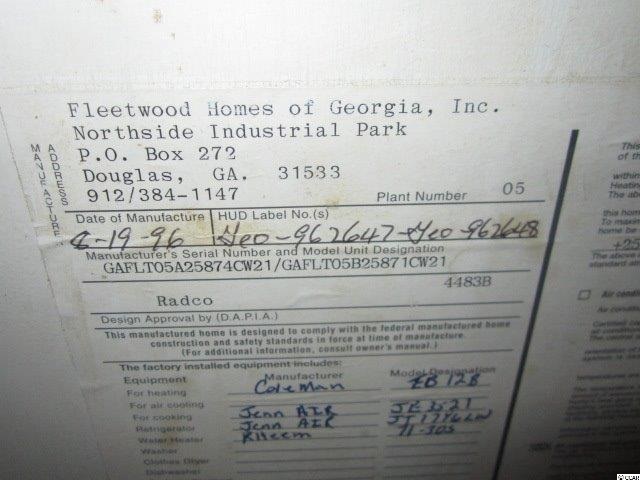 Fleetwood Homes of Georgia, Inc.
Northside Industrial Park
P.O. Box 272
Douglas, GA. 31533
912/384-1147
MANUFACTURER
ADDRESS
Plant Number 05
Date of Manufacture HUD Label No.(s)
8-19-96 Geo-962647-Geo-962648
Manufacturer's Serial Number and Model Unit Designation
GAFLT05A25874CW21/GAFLT05B25871CW21
4483B
Radco
Design Approval by (D.A.P.I.A.)
This manufactured home is designed to comply with the federal manufactured home
construction and safety standards in force at time of manufacture.
(For additional information, consult owner's manual.)
The factory installed equipment includes:
Equipment Manufacturer Model Designation
For heating Coleman EB12B
For air cooling
For cooking Jenn AIR
Refrigerator Jenn AIR
Water Heater Rheem 71-30S
Washer
Clothes Dryer
Dishwasher
This
of th
within
Heating
The abo
this hom
To maxim
home be
+25
The above
standard
Air condi
Air conditi